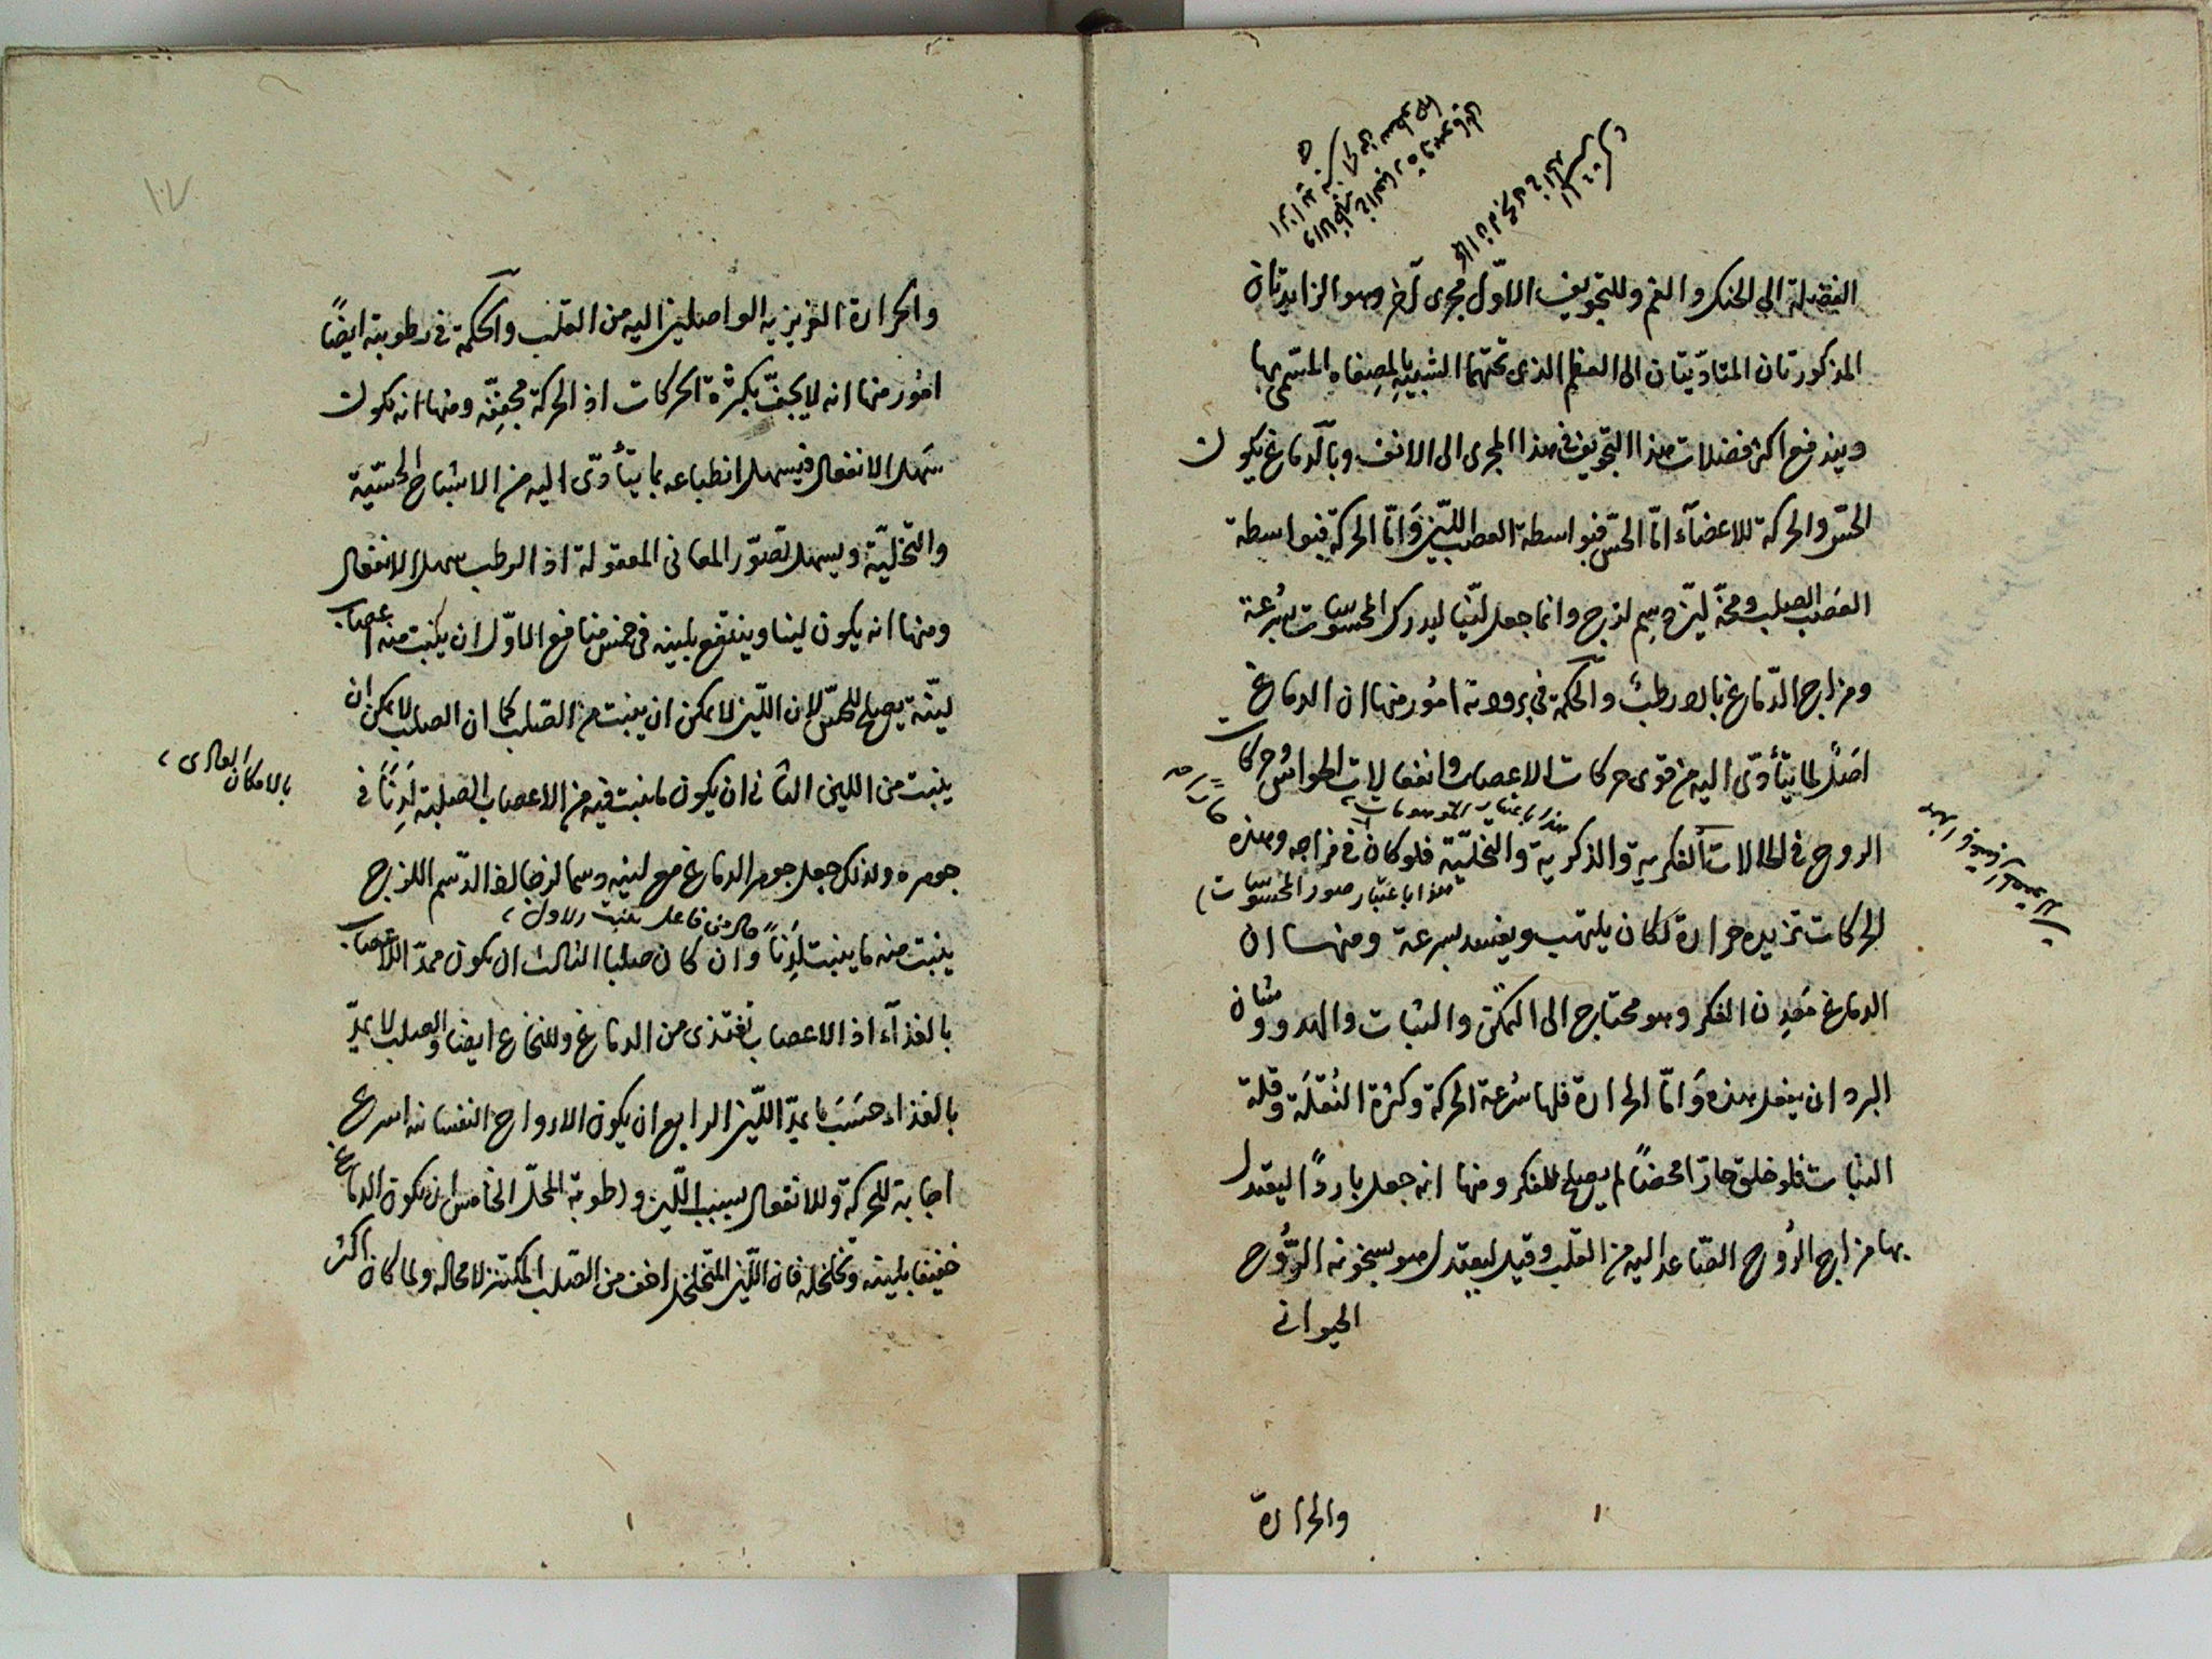 الفضلة الى الحنك والفم وللتجويف الاوّل مجرى آخر وهو الزايدتان
المذكورتان المتادّيتان الى العظم الذى تحتهما الشبيه بالمصفاه المسمى بها
ويندفع اكثر فضلات هذا التجويف فى هذا المجرى الى الانف وبالدماغ يكون
الحسّ والحركة للاعضآء امّا الحسّ فبواسطة العصب الليّن وَامّا الحركة فبواسطة
العصَب الصلب ومخّه ليّن دسِم لزج وانما جعل ليّنا ليدرك المحسوسات بسُرعة
ومزاج الدّماغ بارد رطب والحكمة فى برودته امُور منها ان الدماغ
اصلٌ لما يتأدّى اليه من قوى حركات الاعصاب وانفعالات الحواسّ وحركات
الروح فى الحالات الفكرية والذكرية والتخليّة فلو كان فى مزاجه وهذه
هذا باعتبار صور المحسوسات
الحركات تزيده حرارة لكان يلتهب ويفسد بسرعة ومنها ان
الدماغ مَعدِن الفكر وهو محتاج الى التمكّن والثبات والهدو وشان
البرد ان يفعل هذه وَامّا الحرارة فلها سُرعة الحركة وكثرة النُقلَة وقلة
الثبات فلو خلق حارّا محضًا لم يصلح للفكر ومنها انه جعل باردًا ليعتدل
بها مزاج الرُوح الصّاعد اليه من القلب وقيل ليعتدل هو بسخونه الرّوُح
الحيوانى
والحرارة
والحرارة الغريزيه الواصلين اليه من القلب والحكمة فى رطوبته ايضًا
امُور منها انه لا يجفّ بكثرة الحركات اذ الحركة مجفّفه ومنها انه يكون
سَهل الانفعال فيسهل انطباعه بما يتأدّى اليه من الاشباح الحسّيّة
والتخليّة ويسهل تصوّر المعانى المعقولة اذ الرطب سهل الانفعال
ومنها انه يكون لينا وينتفع بلينه فى خمس منافع الاوّل ان ينبت منه اعصاب
ليّنة يصلح للحسّ لان الليّن لا يمكن ان ينبت من الصّلب كما ان الصلب لا يمكن ان
بالامكان العادى
ينبت من اللين الثانى ان يكون ما ينبت فيه من الاعصاب الصلبة لَدِنًا فى
جوهره ولذلك جعل جوهر الدماغ مع لينه دسما لزجا لان الدّسم اللزج
حال من فاعل ينبت الاول
ينبت منه ما ينبت لَدِناً وان كان صلبا الثالث ان يكون ممدّ الاعصاب
بالغذآء اذ الاعصاب تغتذى من الدماغ وللنخاع ايضا والصلب لا يمدّ
بالغذاء حسَبَ ما يمدّ الليّن الرابع ان يكون الارواح النفسانيه اسرع
اجابة للحركة وللانفعال بسبب اللّين ورطوبة المحلّ الخامس ان يكون الدماغ
خفيفا بلينه وتخلخله فان الليّن المتخلخل اخف من الصّلب المكتنز لا محاله ولما كان اكثر